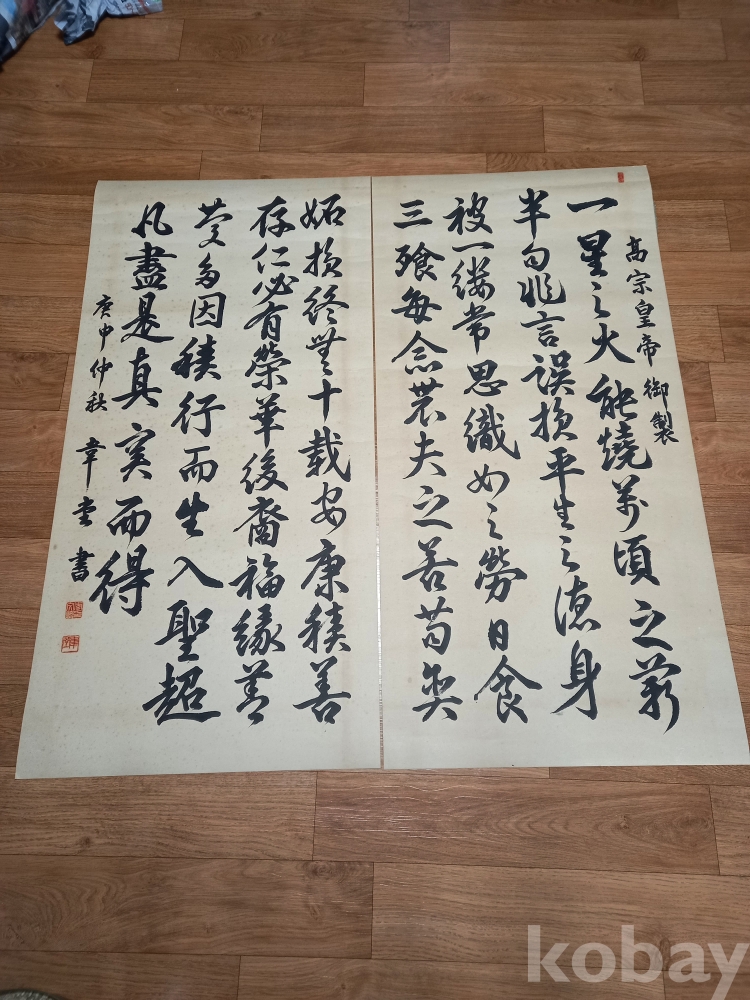 高宗皇帝御製
一星之火能燒萬頃之薪
半句非言誤損平生之德身
被一縷常思織女之勞日食
三飧每念農夫之苦苟貪
妬損終無十載安康積善
存仁必有榮華後裔福緣善
慶多因積行而生入聖超
凡盡是真实而得
庚申仲秋 韋堂 書
kobay